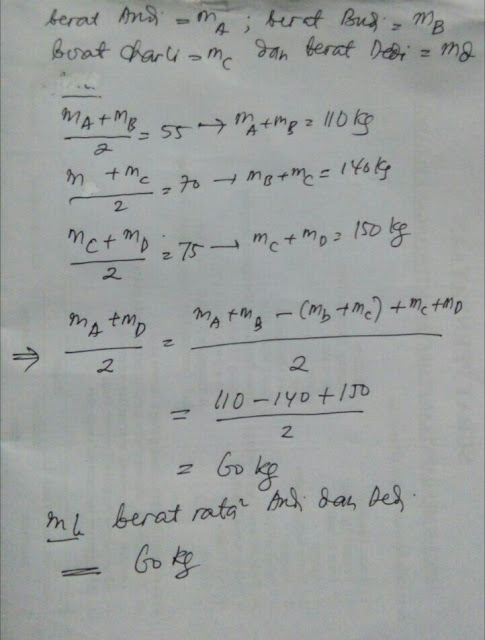 berat Andi = mA ; berat Budi = mB
berat Charli = mC dan berat Dedi = md
mA + mB / 2 = 55 → mA + mB = 110 kg
m + mC / 2 = 70 → mB + mC = 140 kg
mC + mD / 2 = 75 → mC + mD = 150 kg
⇒ mA + mD / 2 = mA + mB − (mb + mC) + mC + mD / 2
= 110 − 140 + 150 / 2
= 60 kg
berat rata² Andi dan Dedi
= 60 kg